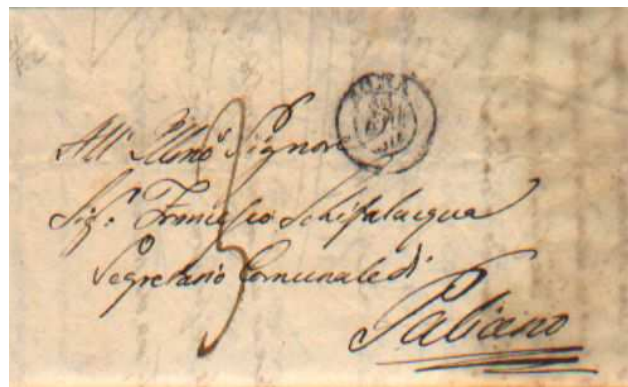 ROMA
All' Illmo Signore
Sig. Francesco Schifalacqua
Segretario Comunale di
Paliano